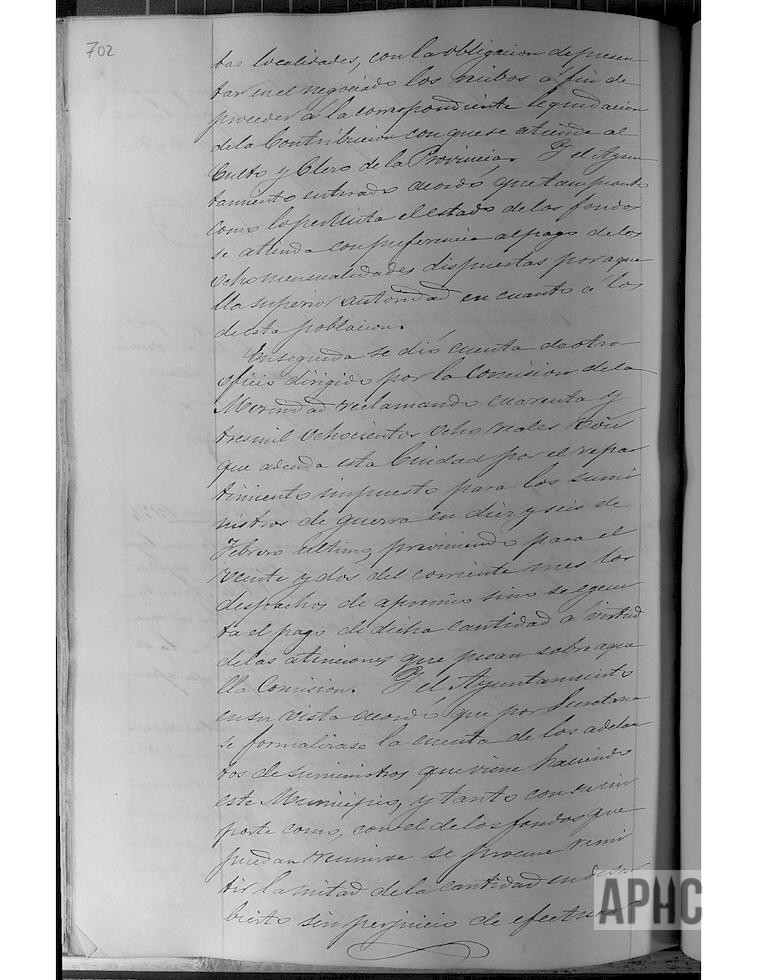 702
tas localidades, con la obligacion de presen
tar en el negociado los recibos a fin de
proceder a la correspondiente liquidacion
de la Contribucion con que se atiende al
Culto y Clero de la Provincia. Y el Ayun
tamiento enterado acordó, que tan pronto
como lo permita el estado de los fondos
se atienda con preferencia al pago de los
ocho mensualidades dispuestas por aque
lla superior autoridad en cuanto á los
de esta poblacion.
Enseguida se dió cuenta de otro
oficio dirigido por la Comision de la
Merindad reclamando cuarenta y
tres mil ochocientos ocho reales von
que adeuda esta Ciudad por el repar
timiento impuesto para los sumi
nistros de guerra en diez y seis de
Febrero ultimo, previniendo para el
veinte y dos del corriente mes los
despachos de apremio sino se egecu
ta el pago de dicha cantidad a virtud
de las atenciones que pesan sobre aque
lla Comision. Y el Ayuntamiento
en su vista acordó que por Secretaria
se formalizase la cuenta de los adelan
tos de suministros que viene haciendo
este Municipio, y tanto con su im
porte como, con el de los fondos que
puedan reunirse se procure remi
tir la mitad de la cantidad en descu
bierto sin perjuicio de efectuar
APHC